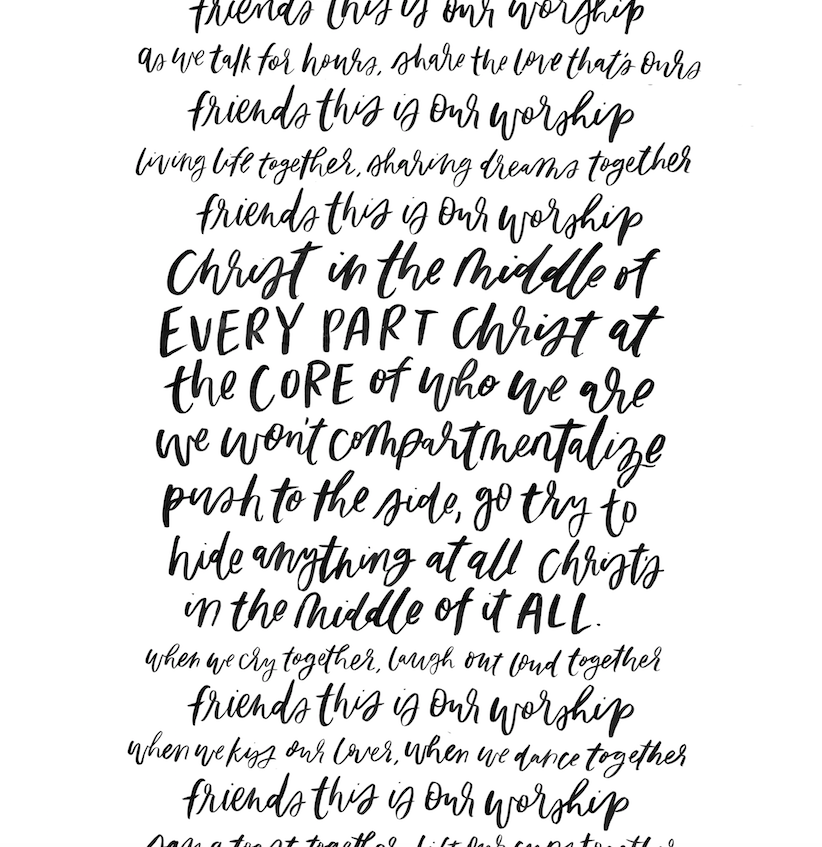 friends this is our worship
as we talk for hours, share the love that's ours
friends this is our worship
living life together, sharing dreams together
friends this is our worship
Christ in the middle of
EVERY PART Christ at
the CORE of who we are
we won't compartmentalize
push to the side, go try to
hide anything at all Christ's
in the middle of it ALL.
when we cry together, laugh out loud together
friends this is our worship
when we kiss our lover, when we dance together
friends this is our worship
a toast together, lift our cups together